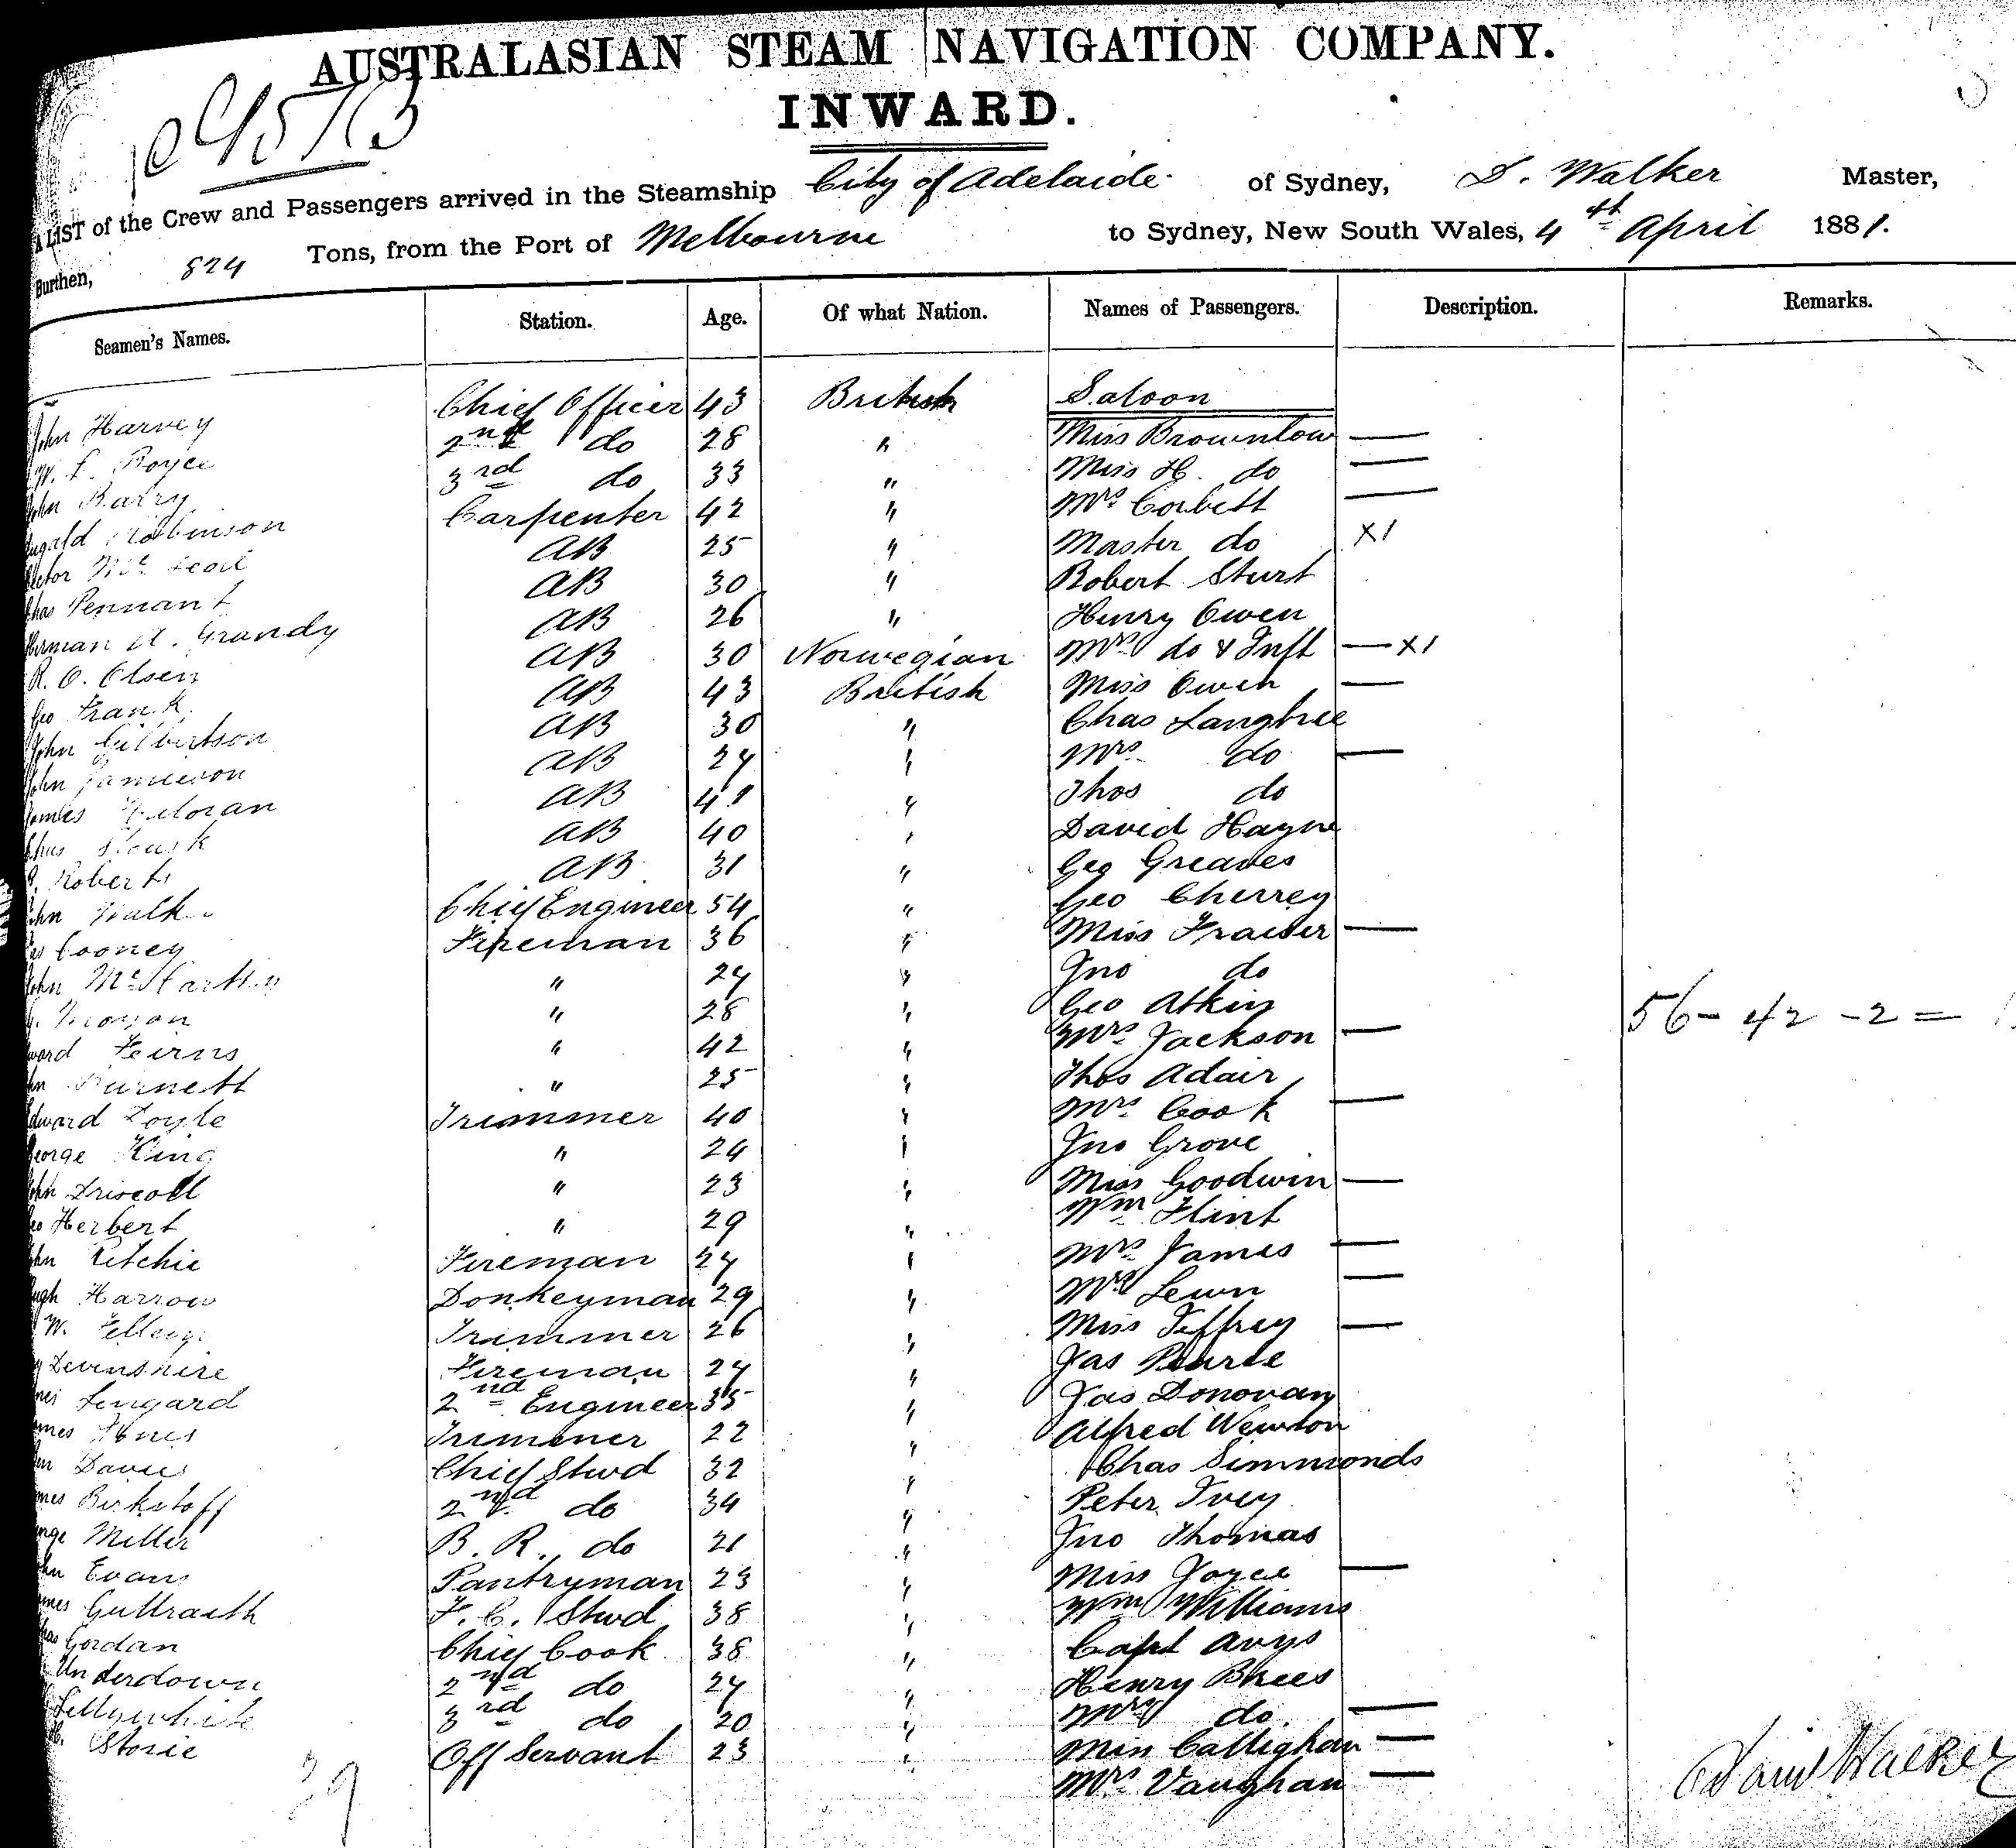 AUSTRALASIAN STEAM NAVIGATION COMPANY.
INWARD.
A LIST of the Crew and Passengers arrived in the Steamship City of Adelaide of Sydney, D. Walker Master,
Burthen, 824 Tons, from the Port of Melbourne to Sydney, New South Wales, 4th April 1881.
Seamen's Names. Station. Age. Of what Nation. Names of Passengers. Description. Remarks.
Saloon
John Harvey Chief Officer 43 British Miss Brownlow —
W. Royce 2nd do 28 " Miss H. do —
John Barry 3rd do 33 " Mrs Corbett —
Robinson Carpenter 42 " Master do X1
AB 25 " Robert Sturt
Chas Pennant AB 30 " Henry Owen
Herman A. Grandy AB 26 " Mrs do & Inft — X1
R. O. Olsen AB 30 Norwegian Miss Owen —
Geo Frank AB 43 British Chas Langtree
John Gilbertson AB 30 " Mrs do —
John Jamieson AB 24 " Thos do
James AB 41 " David Hayne
Chas AB 40 " Geo Greaves
Roberts AB 31 " Geo Cherrey
John Walker Chief Engineer 54 " Miss Fraiser —
Cooney Fireman 36 " Jno do
John " 24 " Geo Atkin
Morgan " 28 " Mrs Jackson — 56 - 42 - 2 =
Feirns " 42 " Thos Adair
Burnett " 25 " Mrs Cook —
Edward Doyle Trimmer 40 " Jno Grove
George King " 24 " Miss Goodwin —
John Driscoll " 23 " Wm Flint
Geo Herbert " 29 " Mrs James —
John Ritchie Fireman 24 " Mrs Lewn —
Hugh Harrow Donkeyman 29 " Miss Jeffrey —
W. Trimmer 26 " Jas Pearce
Devenshire Fireman 24 " Jas Donovan
Lingard 2nd Engineer 35 " Alfred Newton
James Trimmer 22 " Chas Simmonds
Davies Chief Stwd 32 " Peter Ivey
James Birkstoff 2nd do 34 " Jno Thomas
George Miller B. R. do 21 " Miss Joyce —
John Evans Pantryman 23 " Wm Williams
James F. C. Stwd 38 " Capt Avys
Gordan Chief Cook 38 " Henry Brees
Underdown 2nd do 24 " Mrs do —
Lillywhite 3rd do 20 " Miss Callighan —
Storie Off Servant 23 " Mrs Vaughan —
39
David Walker